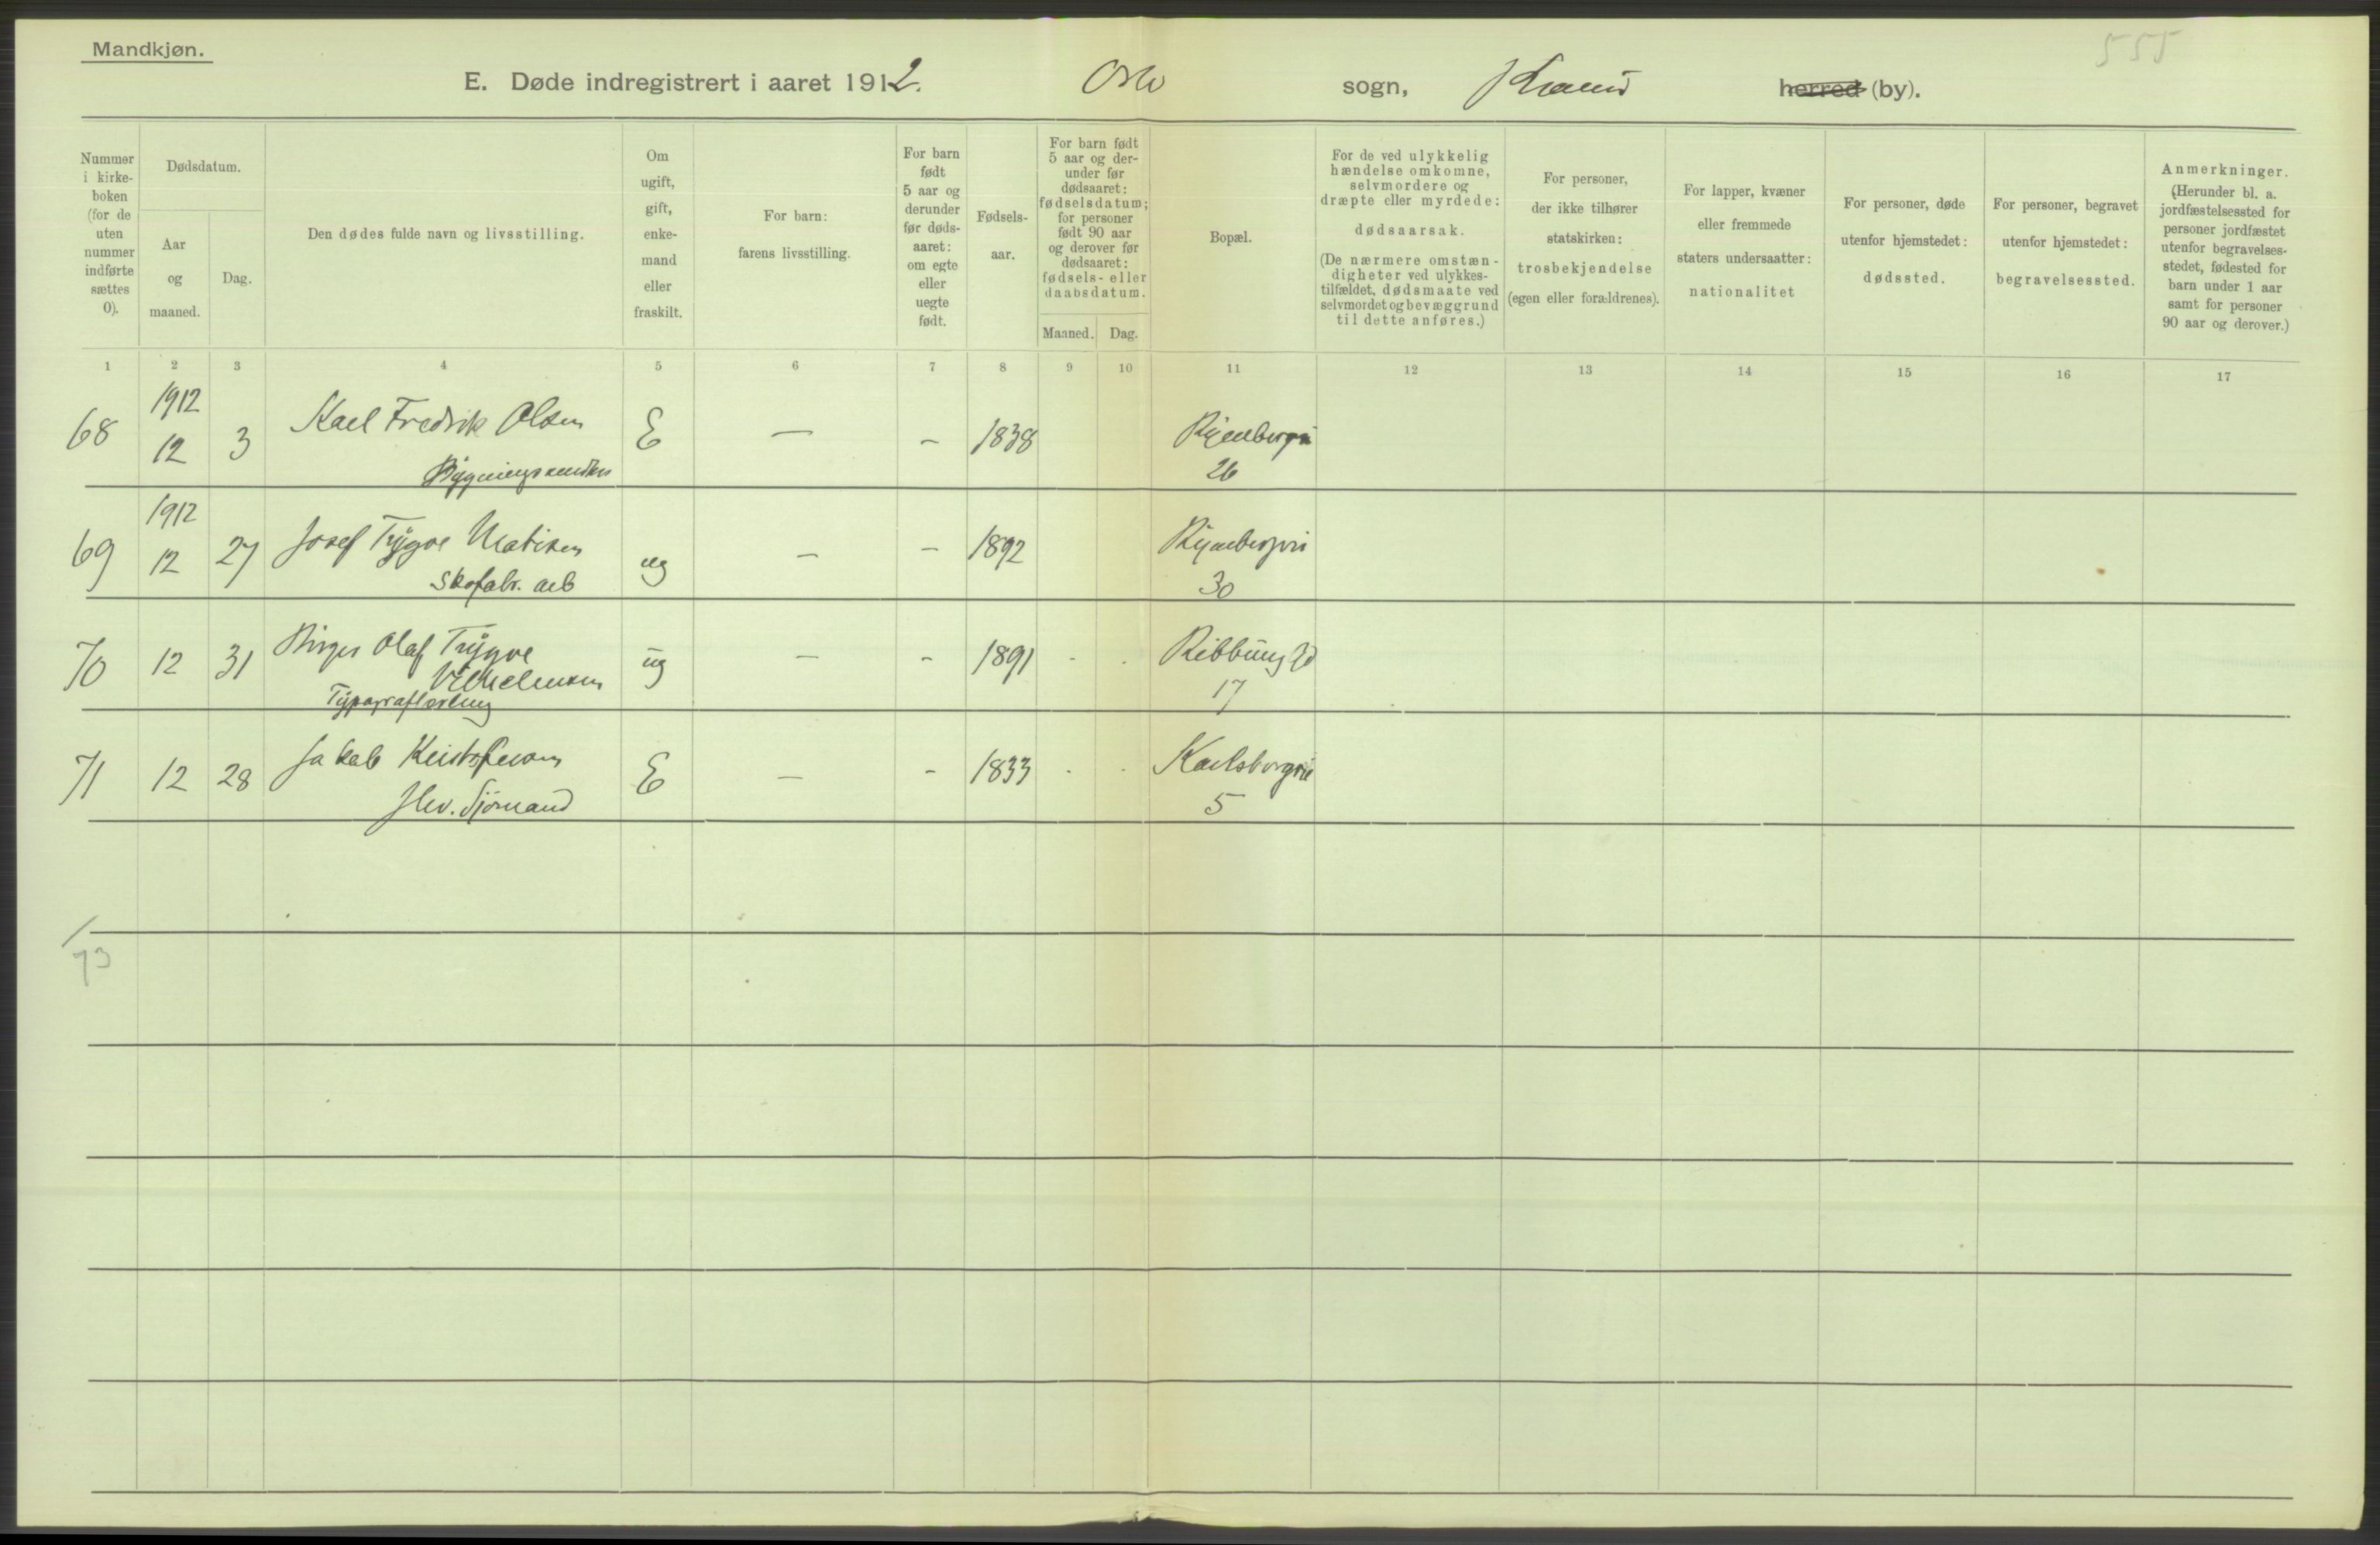 Mandkjøn.
555
E. Døde indregistrert i aaret 1912. Oslo sogn, herred (by).
Nummer i kirke-boken (for de uten nummer indførte sættes 0).
Dødsdatum.
Aar og maaned.
Dag.
Den dødes fulde navn og livsstilling.
Om ugift, gift, enke-mand eller fraskilt.
For barn: farens livsstilling.
For barn født 5 aar og derunder før døds-aaret: om egte eller uegte født.
Fødsels-aar.
For barn født 5 aar og der-under før dødsaaret: fødselsdatum; for personer født 90 aar og derover før dødsaaret: fødsels- eller daabsdatum.
Maaned. Dag.
Bopæl.
For de ved ulykkelig hændelse omkomne, selvmordere og dræpte eller myrdede: dødsaarsak. (De nærmere omstæn-digheter ved ulykkes-tilfældet, dødsmaate ved selvmordet og bevæggrund til dette anføres.)
For personer, der ikke tilhører statskirken: trosbekjendelse (egen eller forældrenes).
For lapper, kvæner eller fremmede staters undersaatter: nationalitet
For personer, døde utenfor hjemstedet: dødssted.
For personer, begravet utenfor hjemstedet: begravelsessted.
Anmerkninger. (Herunder bl. a. jordfæstelsessted for personer jordfæstet utenfor begravelses-stedet, fødested for barn under 1 aar samt for personer 90 aar og derover.)
1 2 3 4 5 6 7 8 9 10 11 12 13 14 15 16 17
1912
68 12 3 Karl Fredrik Olsen E — – 1838
26
1912
69 12 27 Josef Trygve Matisen ug — – 1892
Skofabr. arb 30
70 12 31 Birger Olaf Trygve ug — – 1891 - . Ribbung gd
Vilhelmsen 17
Typograflærling
71 12 28 Jakob Kristofersen E — – 1833 . . Karlsborgvei
Hv. Sjømand 5
73